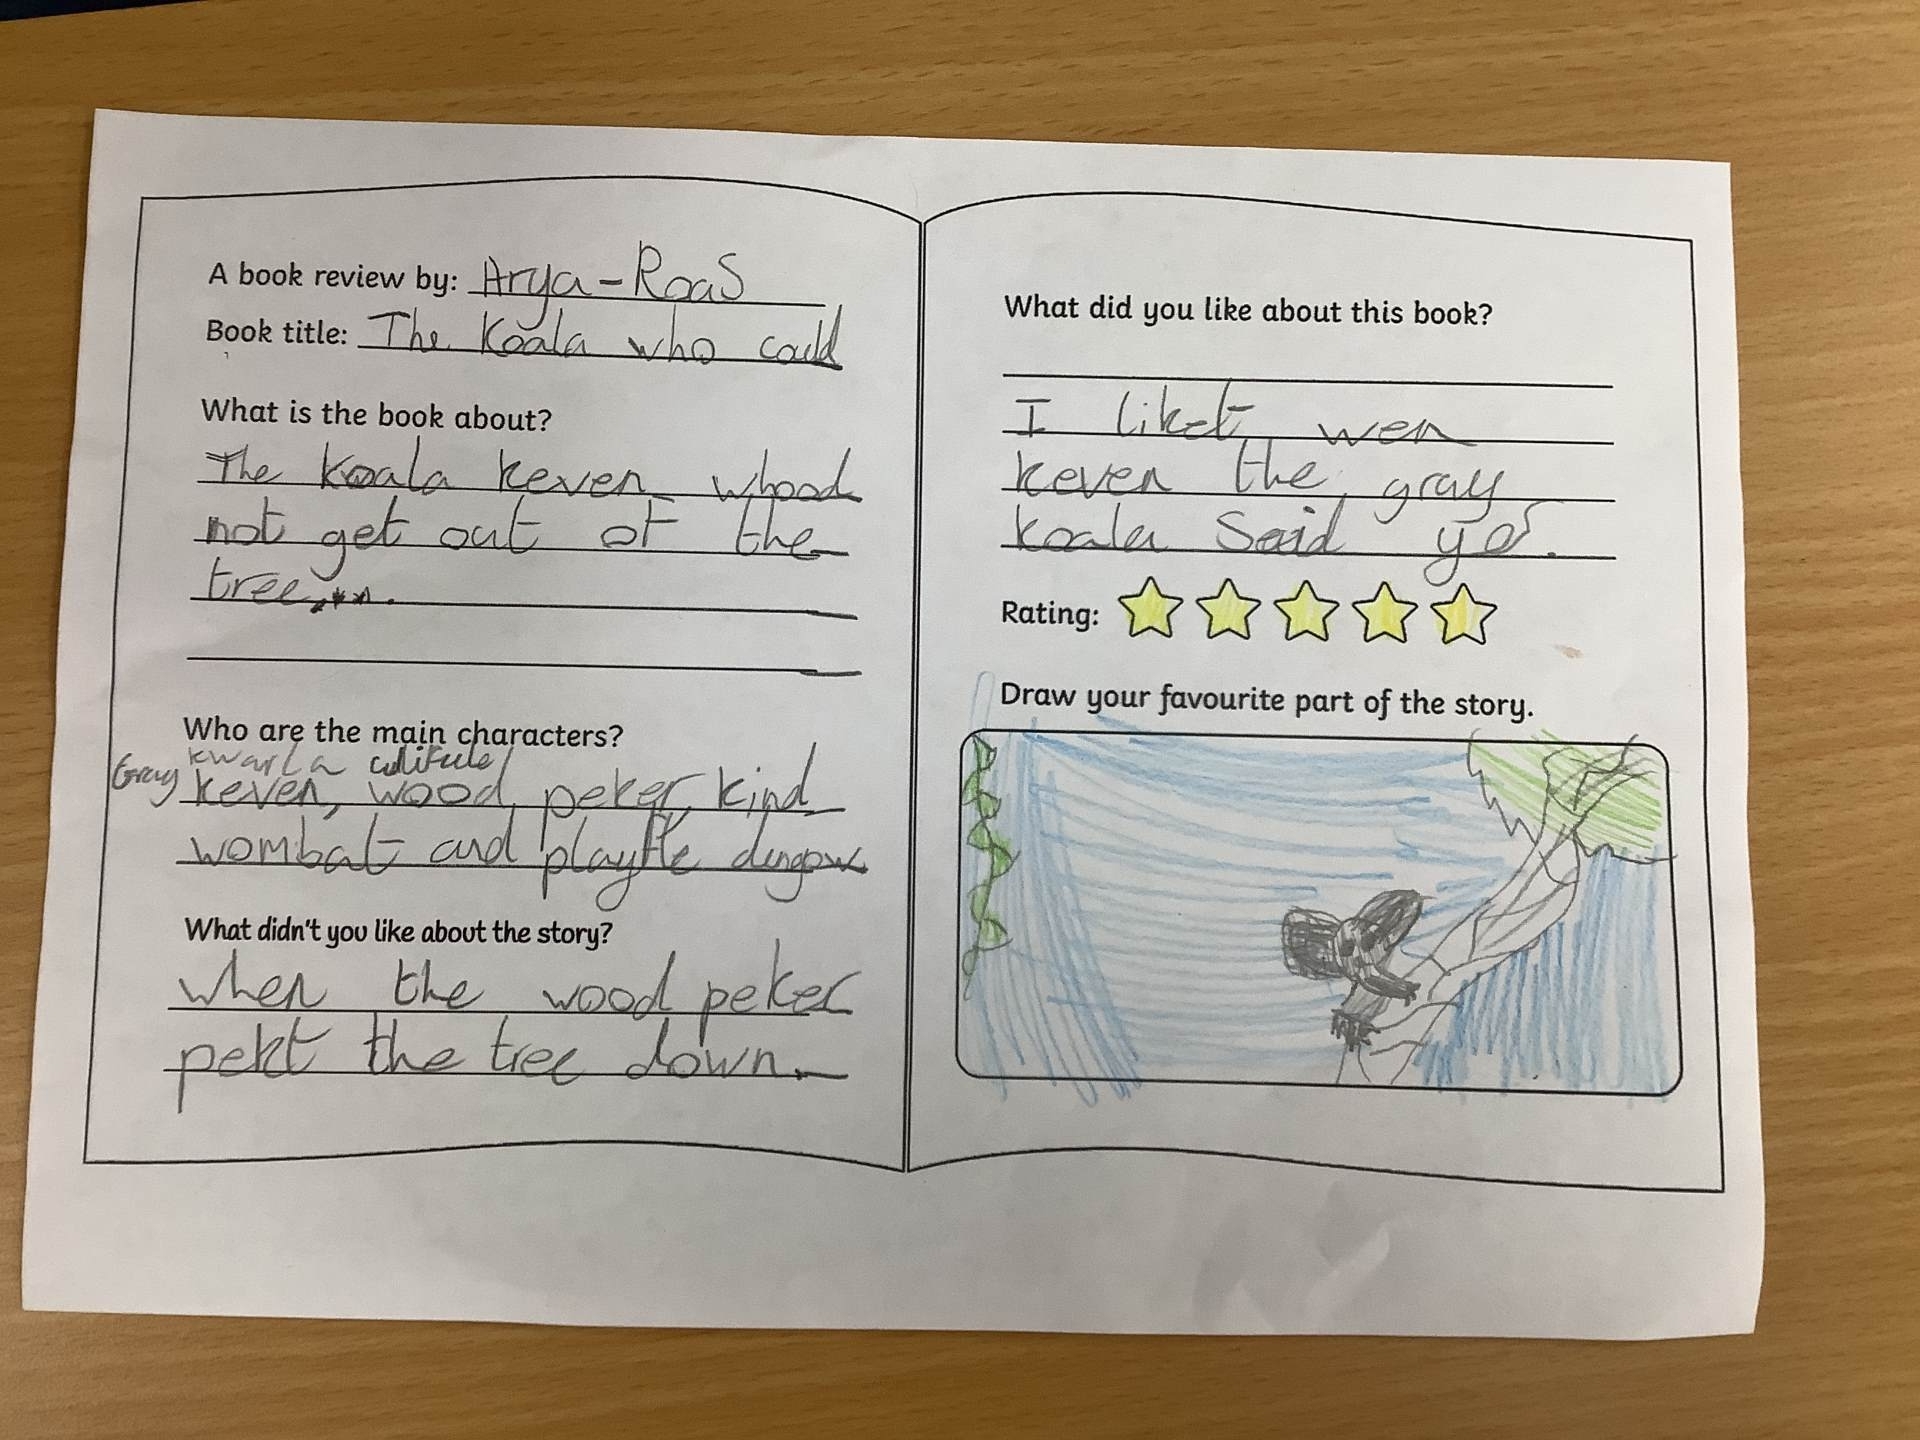 A book review by: Arya-RoaS
Book title: The Koala who could
What is the book about?
The Koala keven whood
not get out of the
tree
Who are the main characters?
Gray kwarla
keven, wood peker, kind
wombat and playfle
What didn't you like about the story?
when the wood peker
pekt the tree down.
What did you like about this book?
I liket wen
keven the gray
koala Said yes.
Rating:
Draw your favourite part of the story.